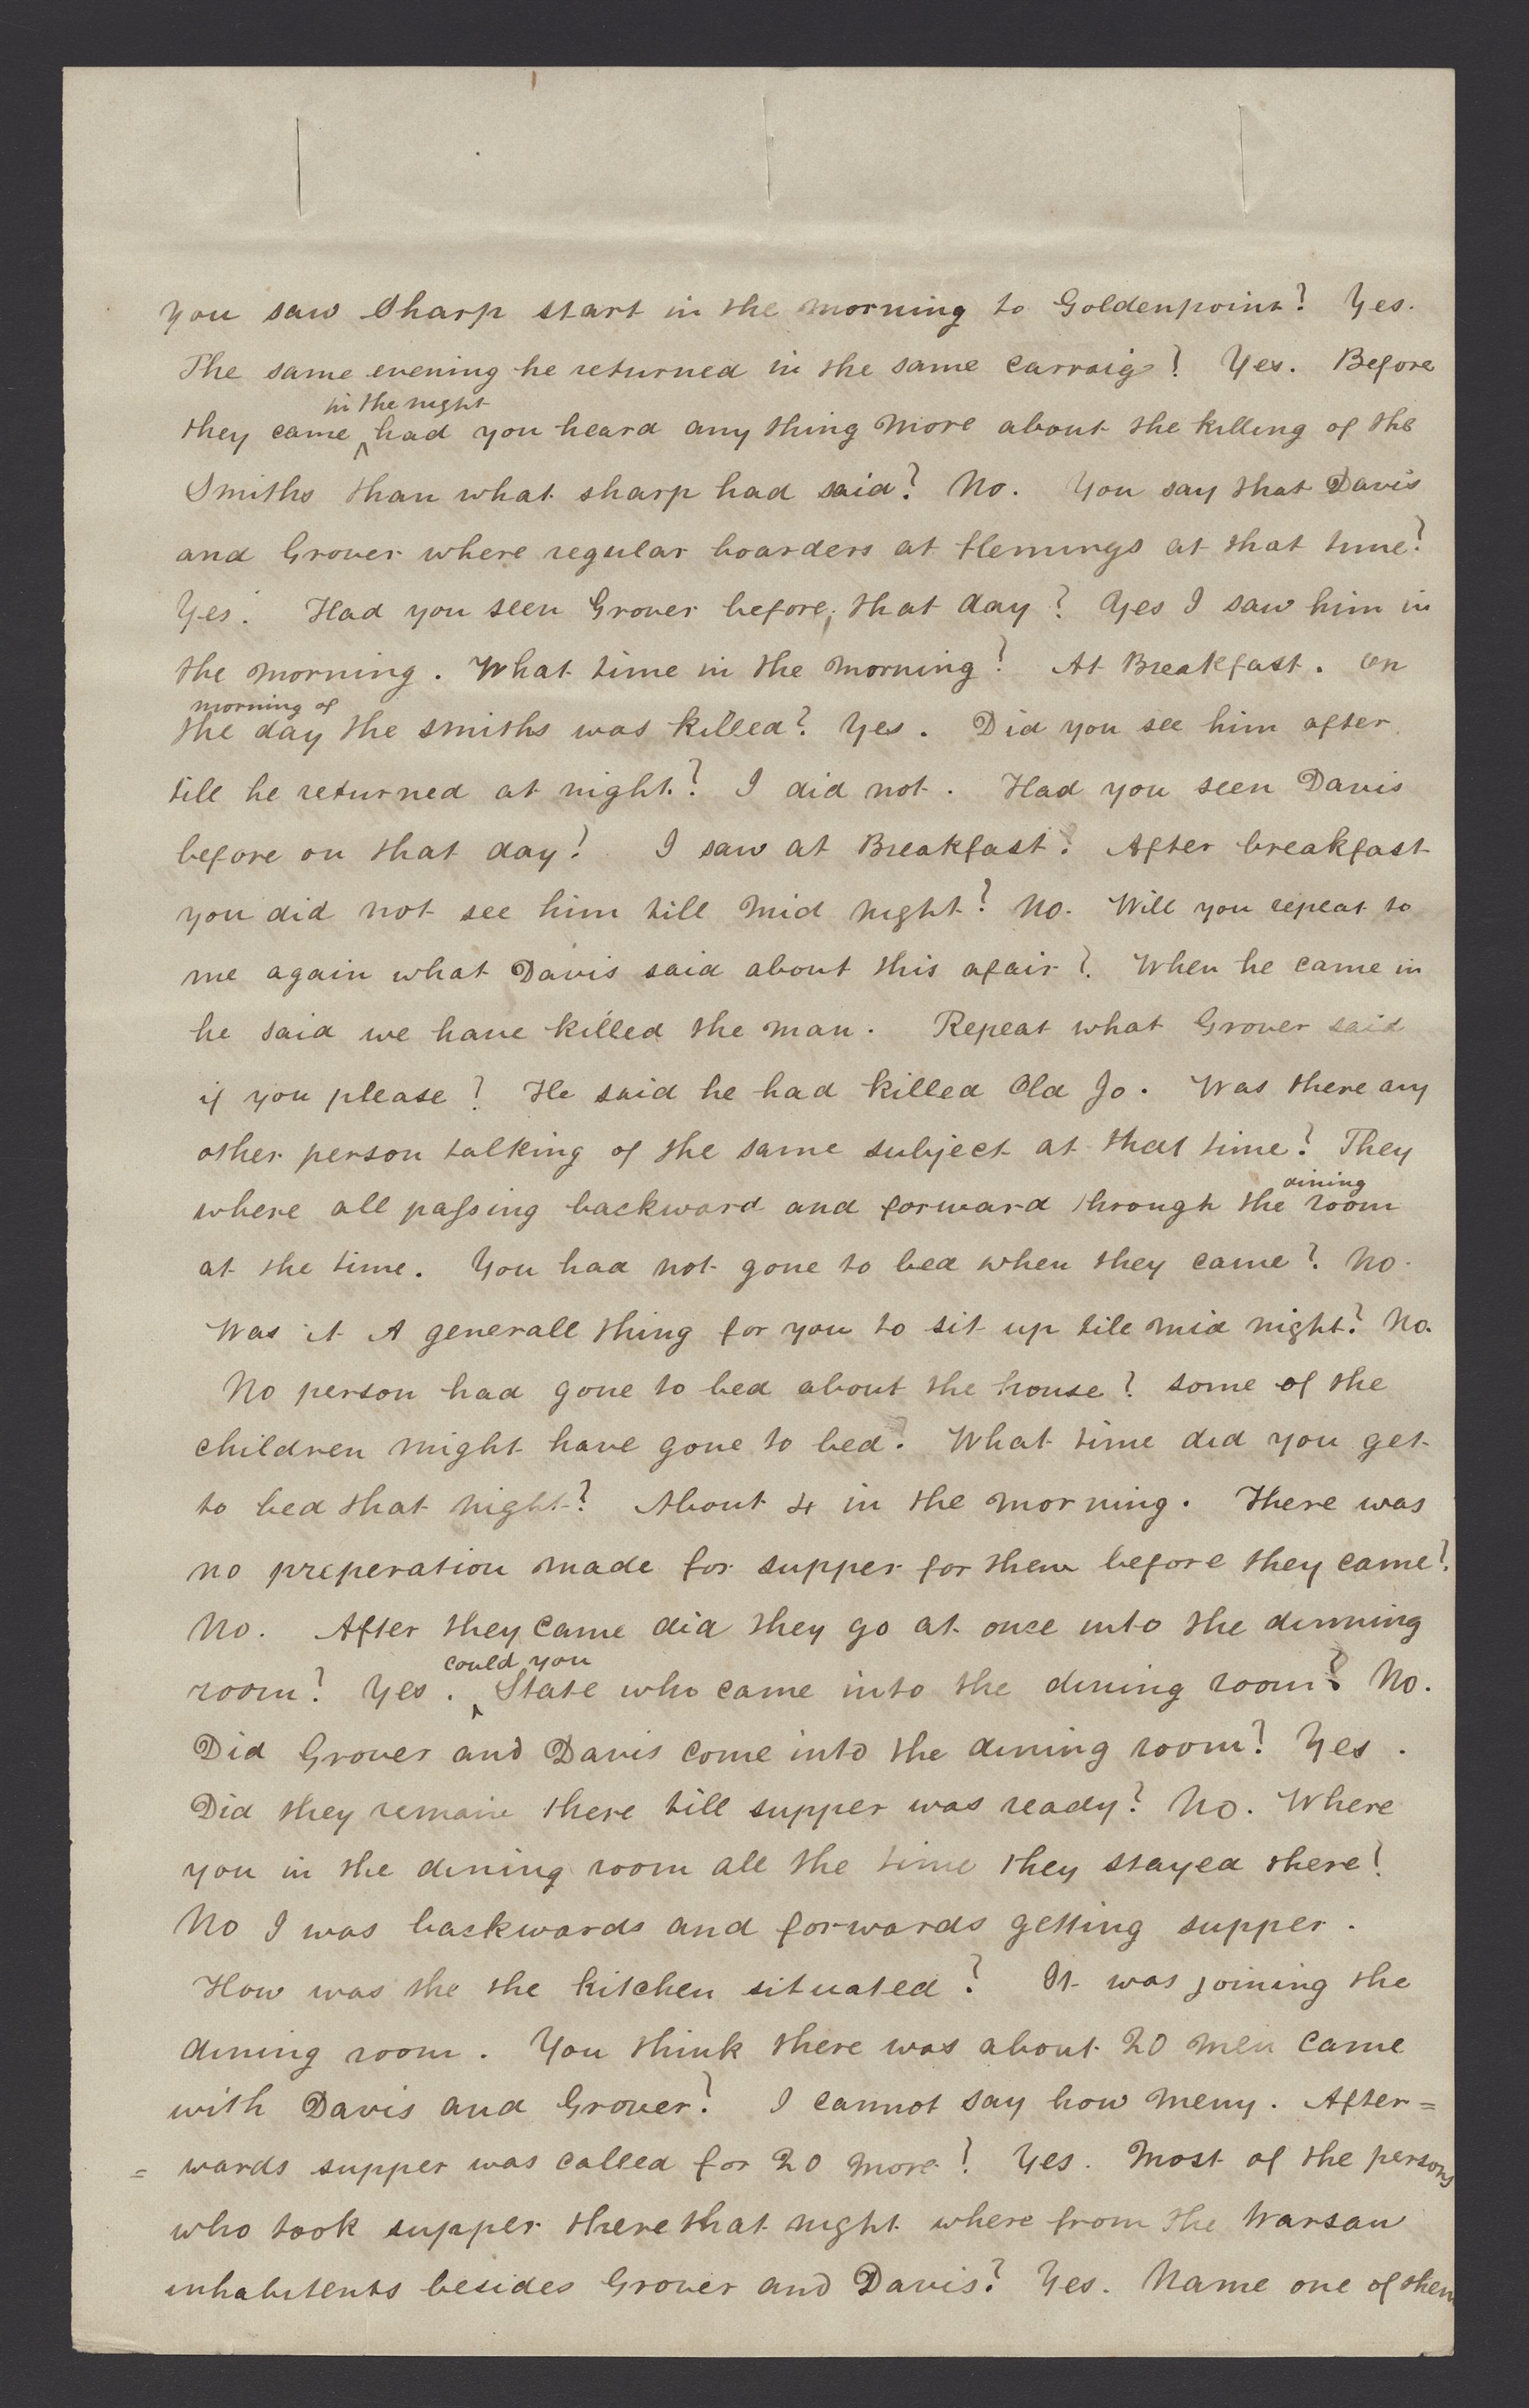 you saw Sharp start in the morning to Goldenpoint? Yes.
The same evening he returned in the same carraige? Yes. Before
in the night
they came ^ had you heard any thing more about the killing of the
Smiths than what sharp had said? No. You say that Davis
and Grover where regular boarders at Flemings at that time?
Yes. Had you seen Grover before, that day? Yes I saw him in
the morning. What time in the morning? At Breakfast. On
morning of
the day the smiths was killed? Yes. Did you see him after
till he returned at night? I did not. Had you seen Davis
before on that day? I saw at Breakfast. After breakfast
you did not see him till mid night? No. Will you repeat to
me again what Davis said about this afair? When he came in
he said we have killed the man. Repeat what Grover said
if you please? He said he had killed Old Jo. Was there any
other person talking of the same subject at that time? They
dining
where all passing backward and forward through the room
at the time. You had not gone to bed when they came? No.
Was it A generall thing for you to sit up till mid night? No.
No person had gone to bed about the house? some of the
children might have gone to bed. What time did you get
to bed that night? About 4 in the morning. There was
no preperation made for supper for them before they came?
No. After they came did they go at once into the dinning
could you
room? Yes. ^ State who came into the dining room? No.
Did Grover and Davis come into the dining room? Yes.
Did they remain there till supper was ready? No. Where
you in the dining room all the time they stayed there?
No I was backwards and forwards getting supper.
How was the the kitchen situated? It was joining the
dining room. You think there was about 20 men came
with Davis and Grover? I cannot say how meny. After=
=wards supper was called for 20 more? Yes. Most of the persons
who took supper there that night where from the Warsaw
inhabitents besides Grover and Davis? Yes. Name one of them